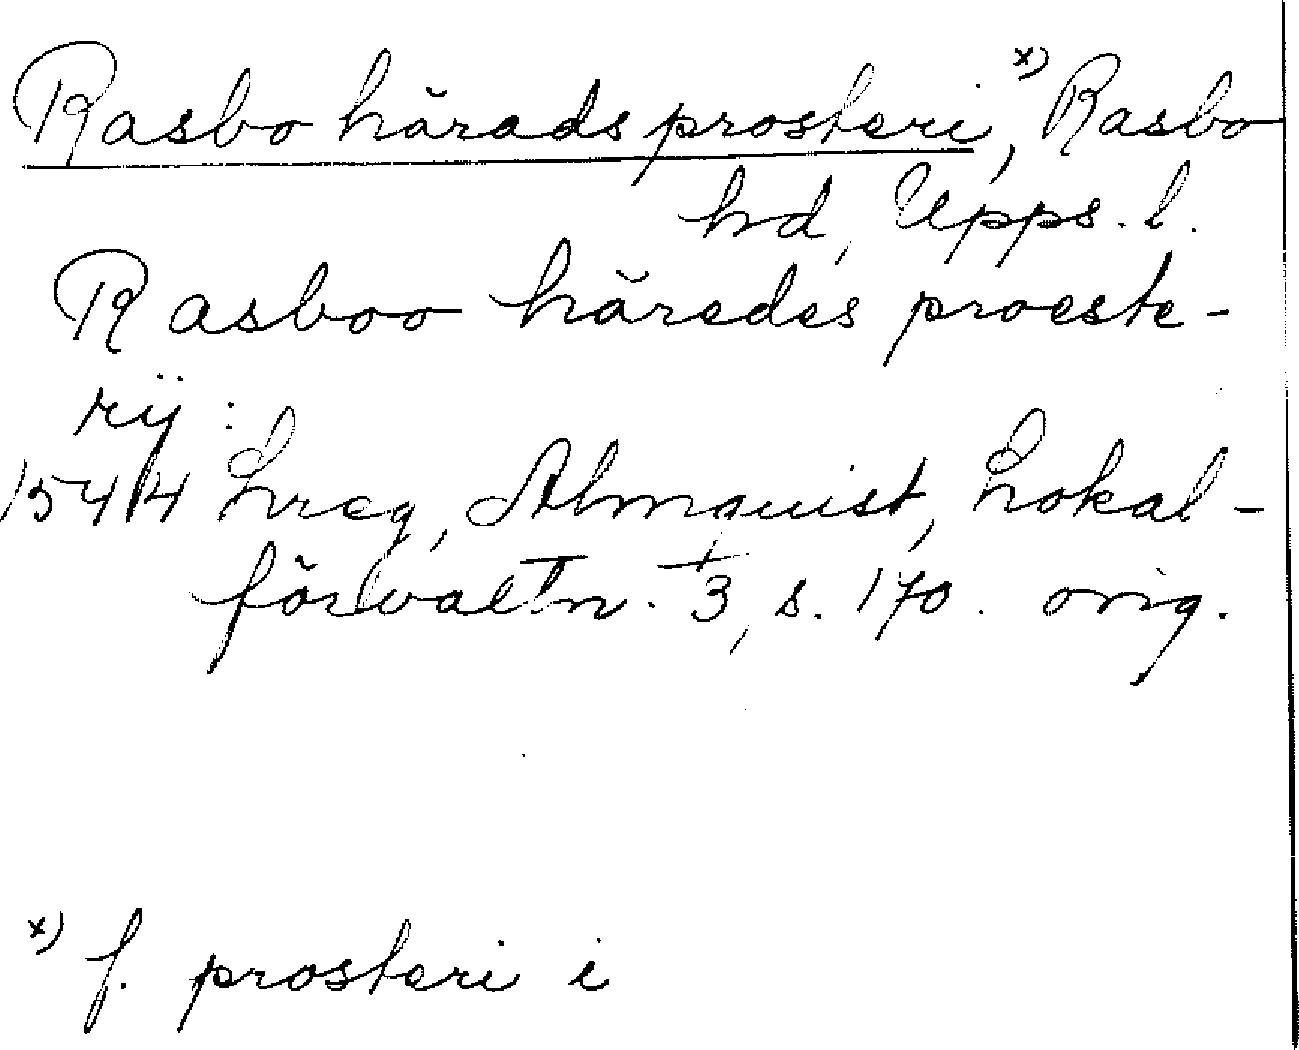 Rasbo härads prosteri,ˣ⁾ Rasbo
hd, Upps. l.
Rasboo häredes proeste-
rij :
1544 Lreg, Almquist, Lokal-
förvaltn. I/3, s. 170. orig.
ˣ⁾ f. prosteri i